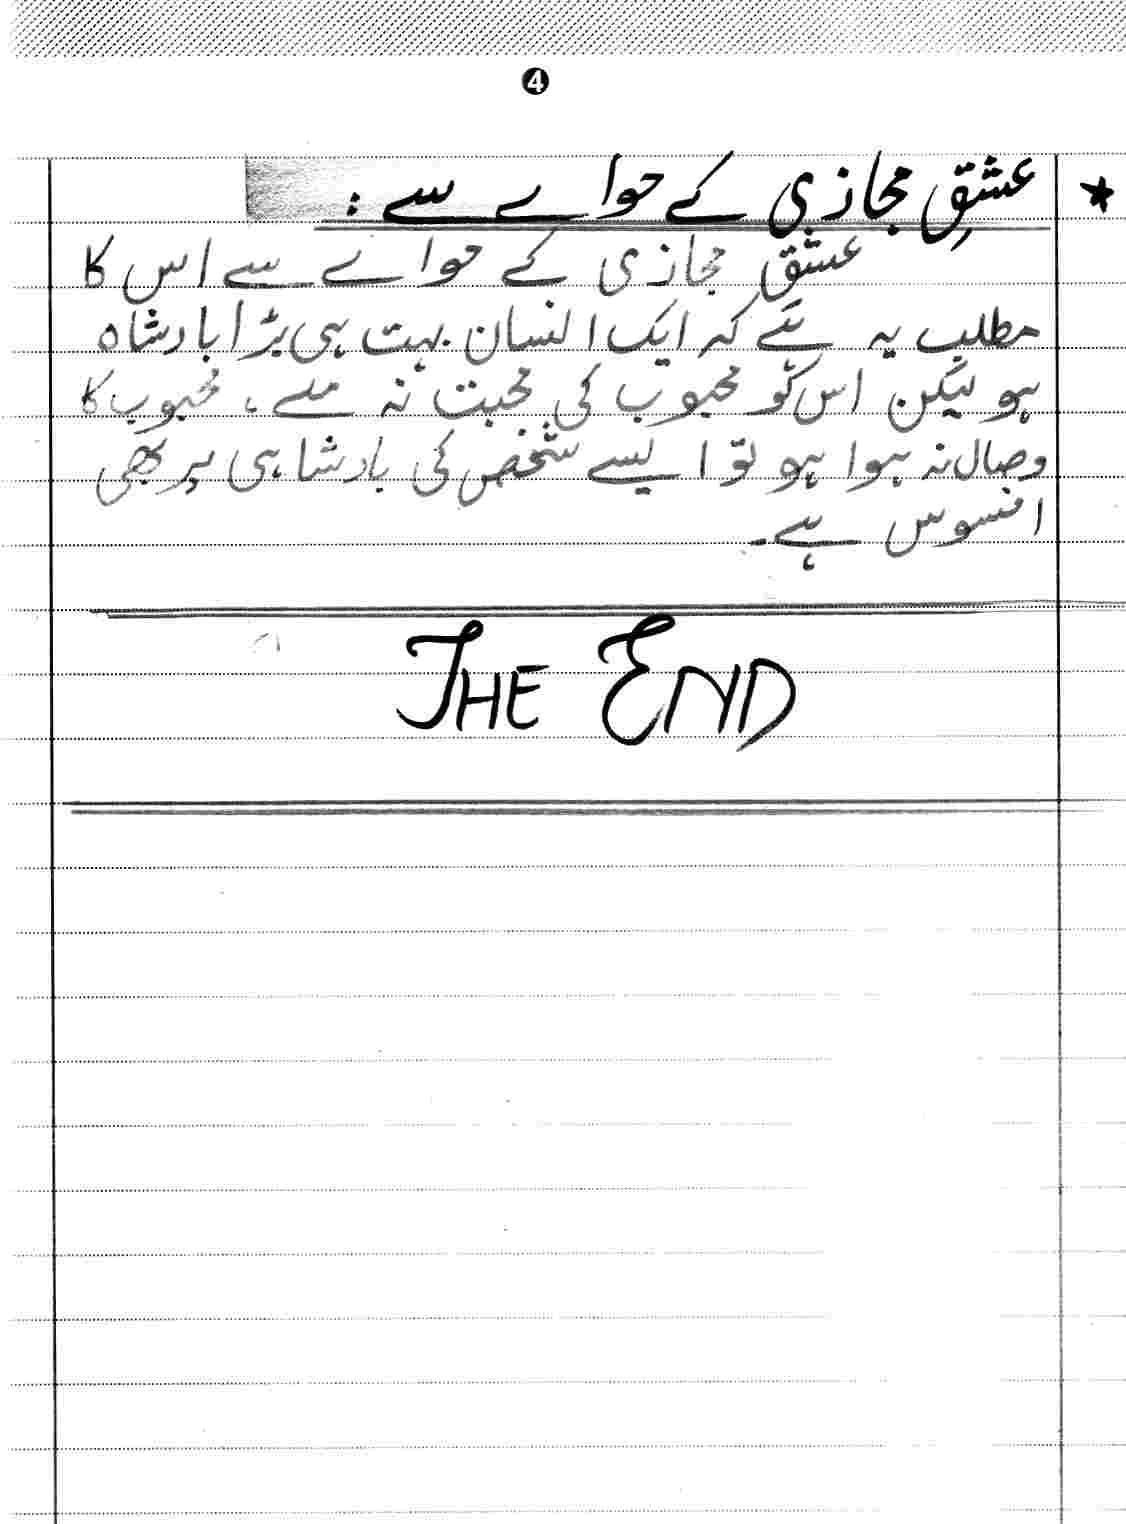 4
★ عشقِ مجازی کے حوالے سے :
عشق مجازی کے حوالے سے اس کا
مطلب یہ ہے کہ ایک انسان بہت ہی بڑا بادشاہ
ہو لیکن اس کو محبوب کی محبت نہ ملے، محبوب کا
وصال نہ ہوا ہو تو ایسے شخص کی بادشاہی پر بھی
افسوس ہے۔
THE END